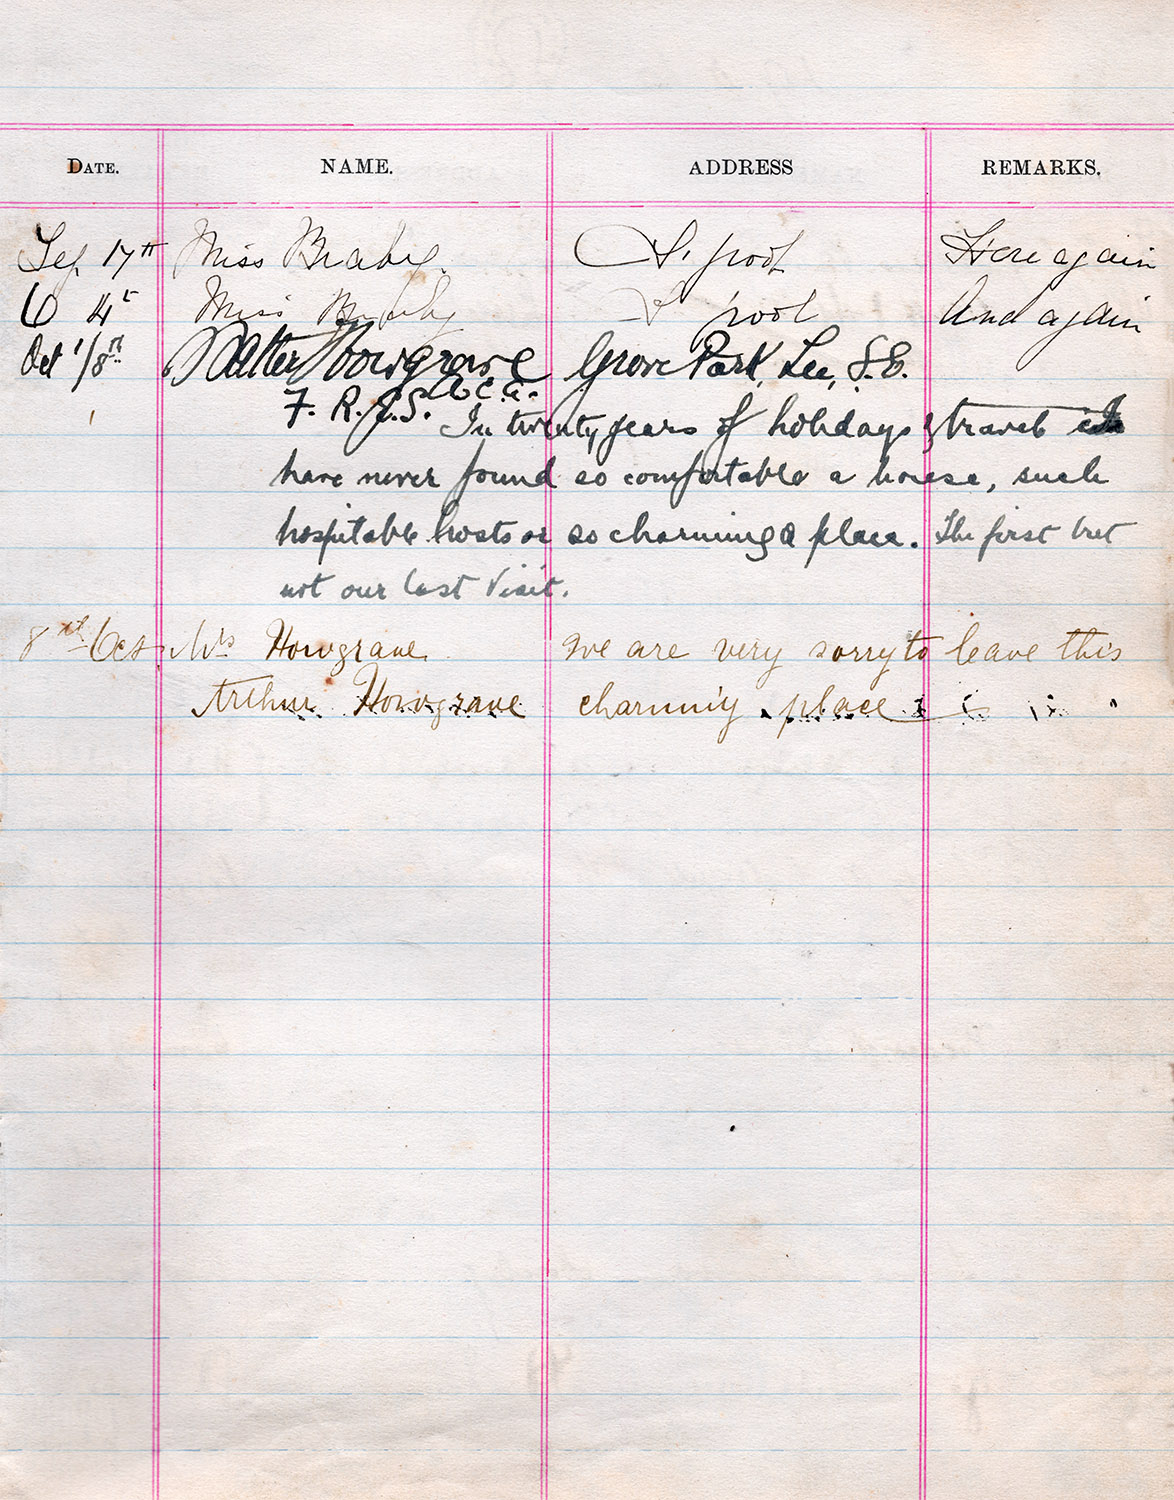 DATE. NAME. ADDRESS REMARKS.
Sep 17th Miss L'pool Here again
O 4t Miss L'pool And again
Oct 1/8th Walter Howgrave Grove Park, Lee, S.E.
F. R. G. S.
In twenty years of holidays & travel I
have never found so comfortable a house, such
hospitable hosts or so charming a place. The first but
not our last visit.
8th Oct Mrs Howgrave We are very sorry to leave this
Arthur Howgrave charming place